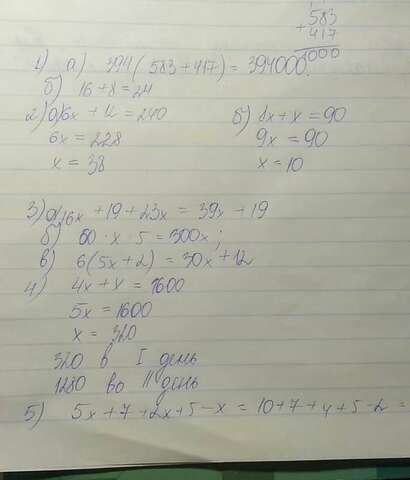 583
+ 417
1000
1) а) 394(583+417) = 394000.
б) 16+8=24
2) а) 6x + 12 = 240
6x = 228
x = 38
б) 8x+x = 90
9x = 90
x = 10
3) а) 16x + 19 + 23x = 39x + 19
б) 60 · x · 5 = 300x;
в) 6(5x+2) = 30x+12
4) 4x + x = 1600
5x = 1600
x = 320
320 в I день
1280 во II день
5) 5x+7+2x+5-x = 10+7+4+5-2 =